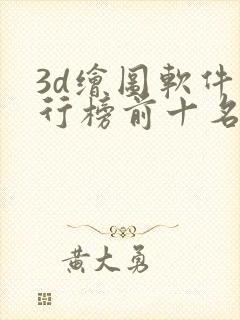 3d繪圖軟件
行榜前十名
黃大勇